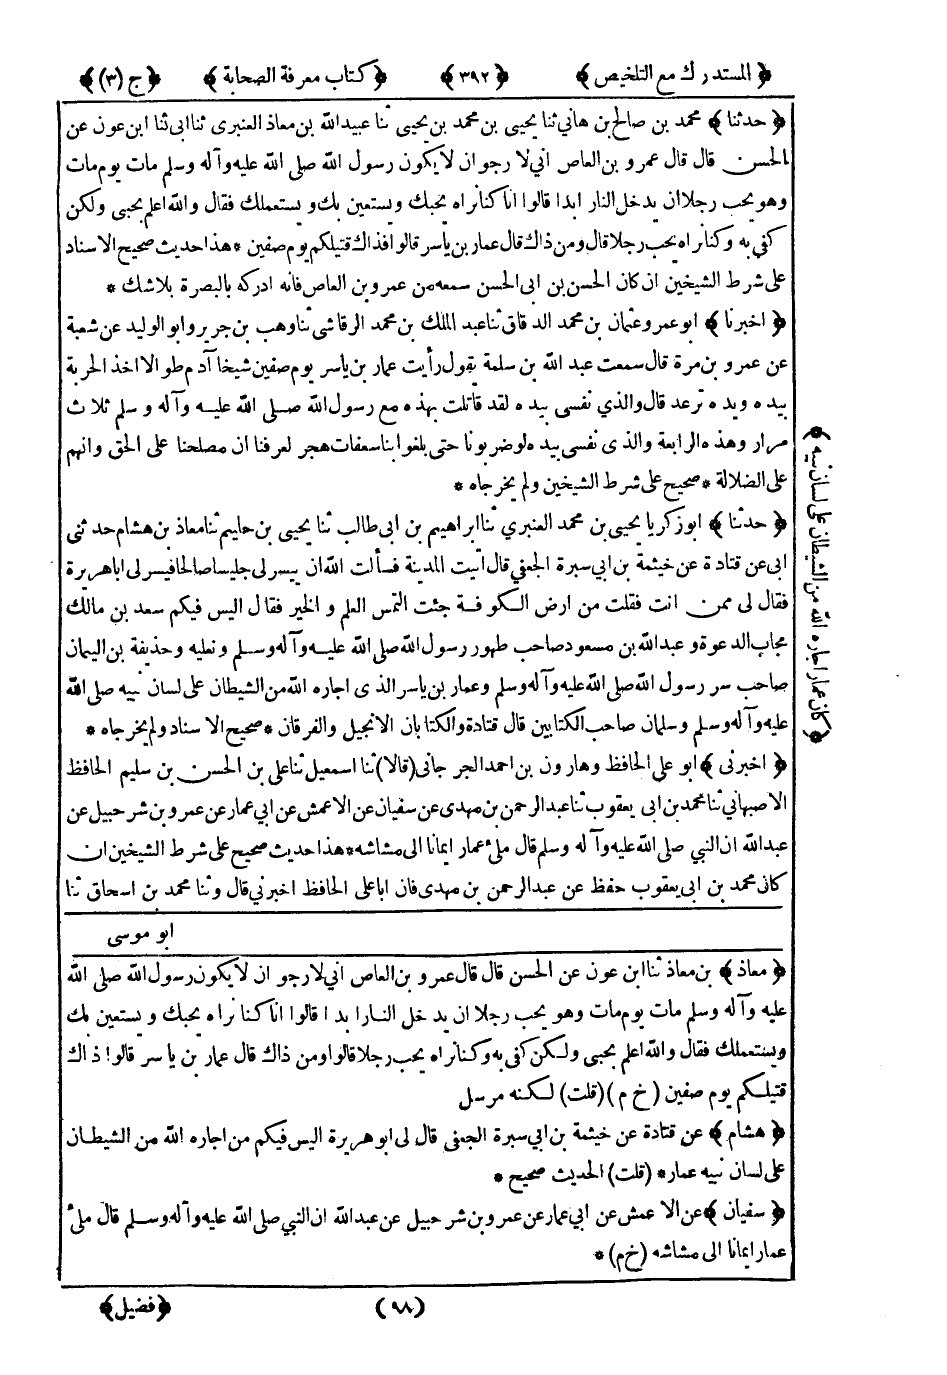 ﴿ المستدرك مع التلخيص ﴾ ﴿ ٣٩٢ ﴾ ﴿ كتاب معرفة الصحابة ﴾ ﴿ ج (٣) ﴾
﴿ حدثنا ﴾ محمد بن صالح بن هاني ثنا يحيى بن محمد بن يحيى ثنا عبيد الله بن معاذ العنبرى ثنا ابى ثنا ابن عون عن
الحسن قال قال عمرو بن العاص اني لارجو ان لا يكون رسول الله صلى الله عليه وآله وسلم مات يوم مات
وهو يحب رجلا ان يدخل النار ابدا قالوا انا كنا نراه يحبك ويستعين بك ويستعملك فقال والله اعلم يحبني ولكن
كفي به وكنا نراه يحب رجلا قال ومن ذاك قال عمار بن ياسر قالوا فذاك قتيلكم يوم صفين * هذا حديث صحيح الاسناد
على شرط الشيخين ان كان الحسن بن ابى الحسن سمعه من عمرو بن العاص فانه ادركه بالبصرة بلاشك *
﴿ اخبرنا ﴾ ابو عمرو عثمان بن محمد الدقاق ثنا عبد الملك بن محمد الرقاشي ثنا وهب بن جرير وابو الوليد عن شعبة
عن عمرو بن مرة قال سمعت عبد الله بن سلمة يقول رأيت عمار بن ياسر يوم صفين شيخا آدم طوالا اخذ الحربة
بيده ويده ترعد قال والذي نفسى بيده لقد قاتلت بهذه مع رسول الله صلى الله عليه وآله وسلم ثلاث
مرار وهذه الرابعة والذى نفسى بيده لو ضربونا حتى بلغوا بنا سعفات هجر لعرفنا ان مصلحنا على الحق وانهم
على الضلالة * صحيح على شرط الشيخين ولم يخرجاه *
﴿ حدثنا ﴾ ابو زكريا يحيى بن محمد العنبري ثنا ابراهيم بن ابى طالب ثنا يحيى بن حليم ثنا معاذ بن هشام حدثنى
ابى عن قتادة عن خيثمة بن ابي سبرة الجعفي قال اتيت المدينة فسألت الله ان ييسر لى جليسا صالحا فيسر لى ابا هريرة
فقال لى ممن انت فقلت من ارض الكوفة جئت التمس العلم و الخير فقال اليس فيكم سعد بن مالك
مجاب الدعوة و عبد الله بن مسعود صاحب طهور رسول الله صلى الله عليه وآله وسلم ونعليه وحذيفة بن اليمان
صاحب سر رسول الله صلى الله عليه وآله وسلم وعمار بن ياسر الذى اجاره الله من الشيطان على لسان نبيه صلى الله
عليه وآله وسلم وسلمان صاحب الكتابين قال قتادة والكتابان الانجيل والفرقان * صحيح الاسناد ولم يخرجاه *
﴿ اخبرنى ﴾ ابو على الحافظ وهارون بن احمد الجرجانى (قالا) ثنا اسمعيل ثنا على بن الحسن بن سليم الحافظ
الاصبهاني ثنا محمد بن ابى يعقوب ثنا عبد الرحمن بن مهدى عن سفيان عن الاعمش عن ابي عمار عن عمرو بن شرحبيل عن
عبد الله ان النبي صلى الله عليه وآله وسلم قال ملئ عمار ايمانا الى مشاشه * هذا حديث صحيح على شرط الشيخين ان
كان محمد بن ابى يعقوب حفظ عن عبد الرحمن بن مهدى فان ابا على الحافظ اخبرني قال وثنا محمد بن اسحاق ثنا
ابو موسى
﴿ كان عمار اجاره الله من الشيطان على لسان نبيه ﴾
﴿ معاذ ﴾ بن معاذ ثنا ابن عون عن الحسن قال قال عمرو بن العاص اني لارجو ان لا يكون رسول الله صلى الله
عليه وآله وسلم مات يوم مات وهو يحب رجلا ان يدخل النار ابدا قالوا انا كنا نراه يحبك ويستعين بك
ويستعملك فقال والله اعلم يحبني ولكن كفى به وكنا نراه يحب رجلا قالوا ومن ذاك قال عمار بن ياسر قالوا ذاك
قتيلكم يوم صفين (خ م) (قلت) لكنه مرسل
﴿ هشام ﴾ عن قتادة عن خيثمة بن ابي سبرة الجعفي قال لى ابو هريرة اليس فيكم من اجاره الله من الشيطان
على لسان نبيه عمار * (قلت) الحديث صحيح *
﴿ سفيان ﴾ عن الاعمش عن ابي عمار عن عمرو بن شرحبيل عن عبد الله ان النبي صلى الله عليه وآله وسلم قال ملئ
عمار ايمانا الى مشاشه (خ م) *
(٩٨) ﴿ فضيل ﴾